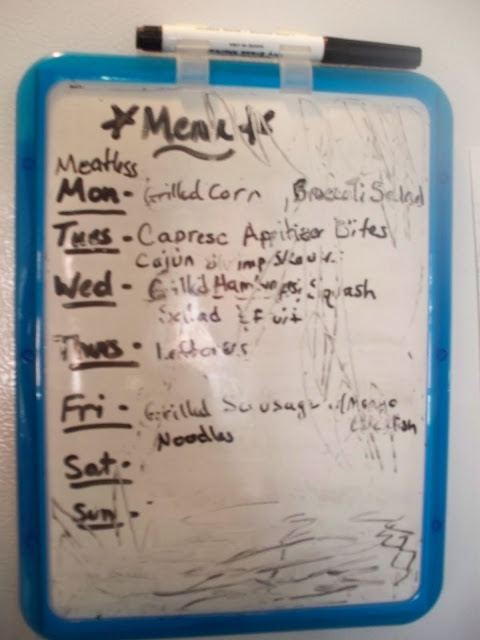 Menu
Meatless
Mon - Grilled Corn, Broccoli Salad
Tues - Caprese Appitizer Bites
Cajun
Wed - Grilled Hamburgers, Squash
Salad & Fruit
Thurs - Leftovers
Fri - Grilled Sausage w/Mango
Noodles
Sat -
Sun -